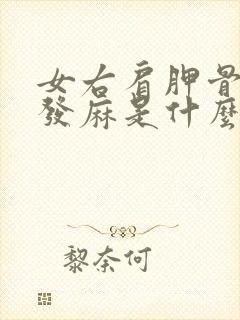 女右肩胛骨
發麻是什麼
黎奈何